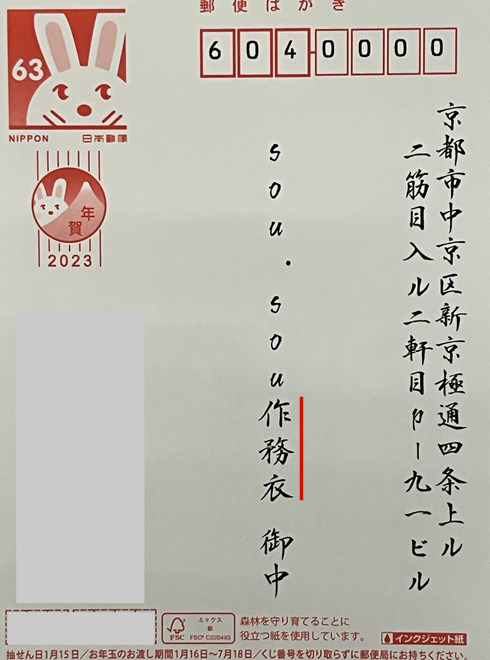 郵便はがき
63
NIPPON 日本郵便
6040000
年賀
2023
京都市中京区新京極通四条上ル
二筋目入ル二軒目P-九一ビル
sou・sou作務衣 御中
FSC
ミックス
紙
FSC® C020493
森林を守り育てることに
役立つ紙を使用しています。
インクジェット紙
抽せん日1月15日/お年玉のお渡し期間1月16日~7月18日/くじ番号を切り取らずに郵便局にお持ちください。